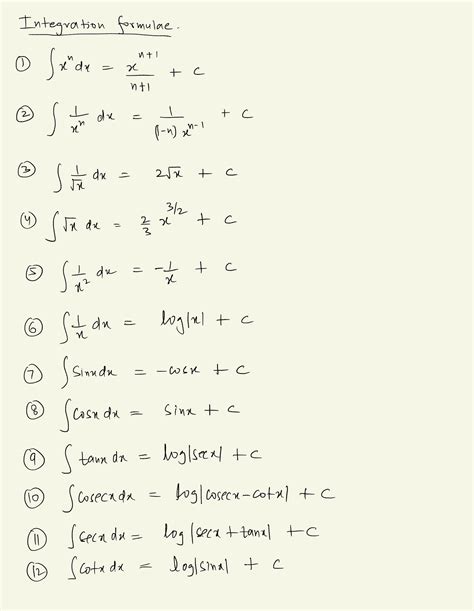 Integration formulae.
① ∫xⁿdx = xⁿ⁺¹/n+1 + c
② ∫ 1/xⁿ dx = 1/(1-n) xⁿ⁻¹ + c
③ ∫ 1/√x dx = 2√x + c
④ ∫√x dx = 2/3 x^3/2 + c
⑤ ∫ 1/x² dx = -1/x + c
⑥ ∫ 1/x dx = log|x| + c
⑦ ∫sinxdx = -cosx + c
⑧ ∫cosxdx = sinx + c
⑨ ∫ tanx dx = log|secx| + c
⑩ ∫cosecxdx = log|cosecx-cotx| + c
⑪ ∫secxdx = log|secx+tanx| + c
⑫ ∫cotxdx = log|sinx| + c